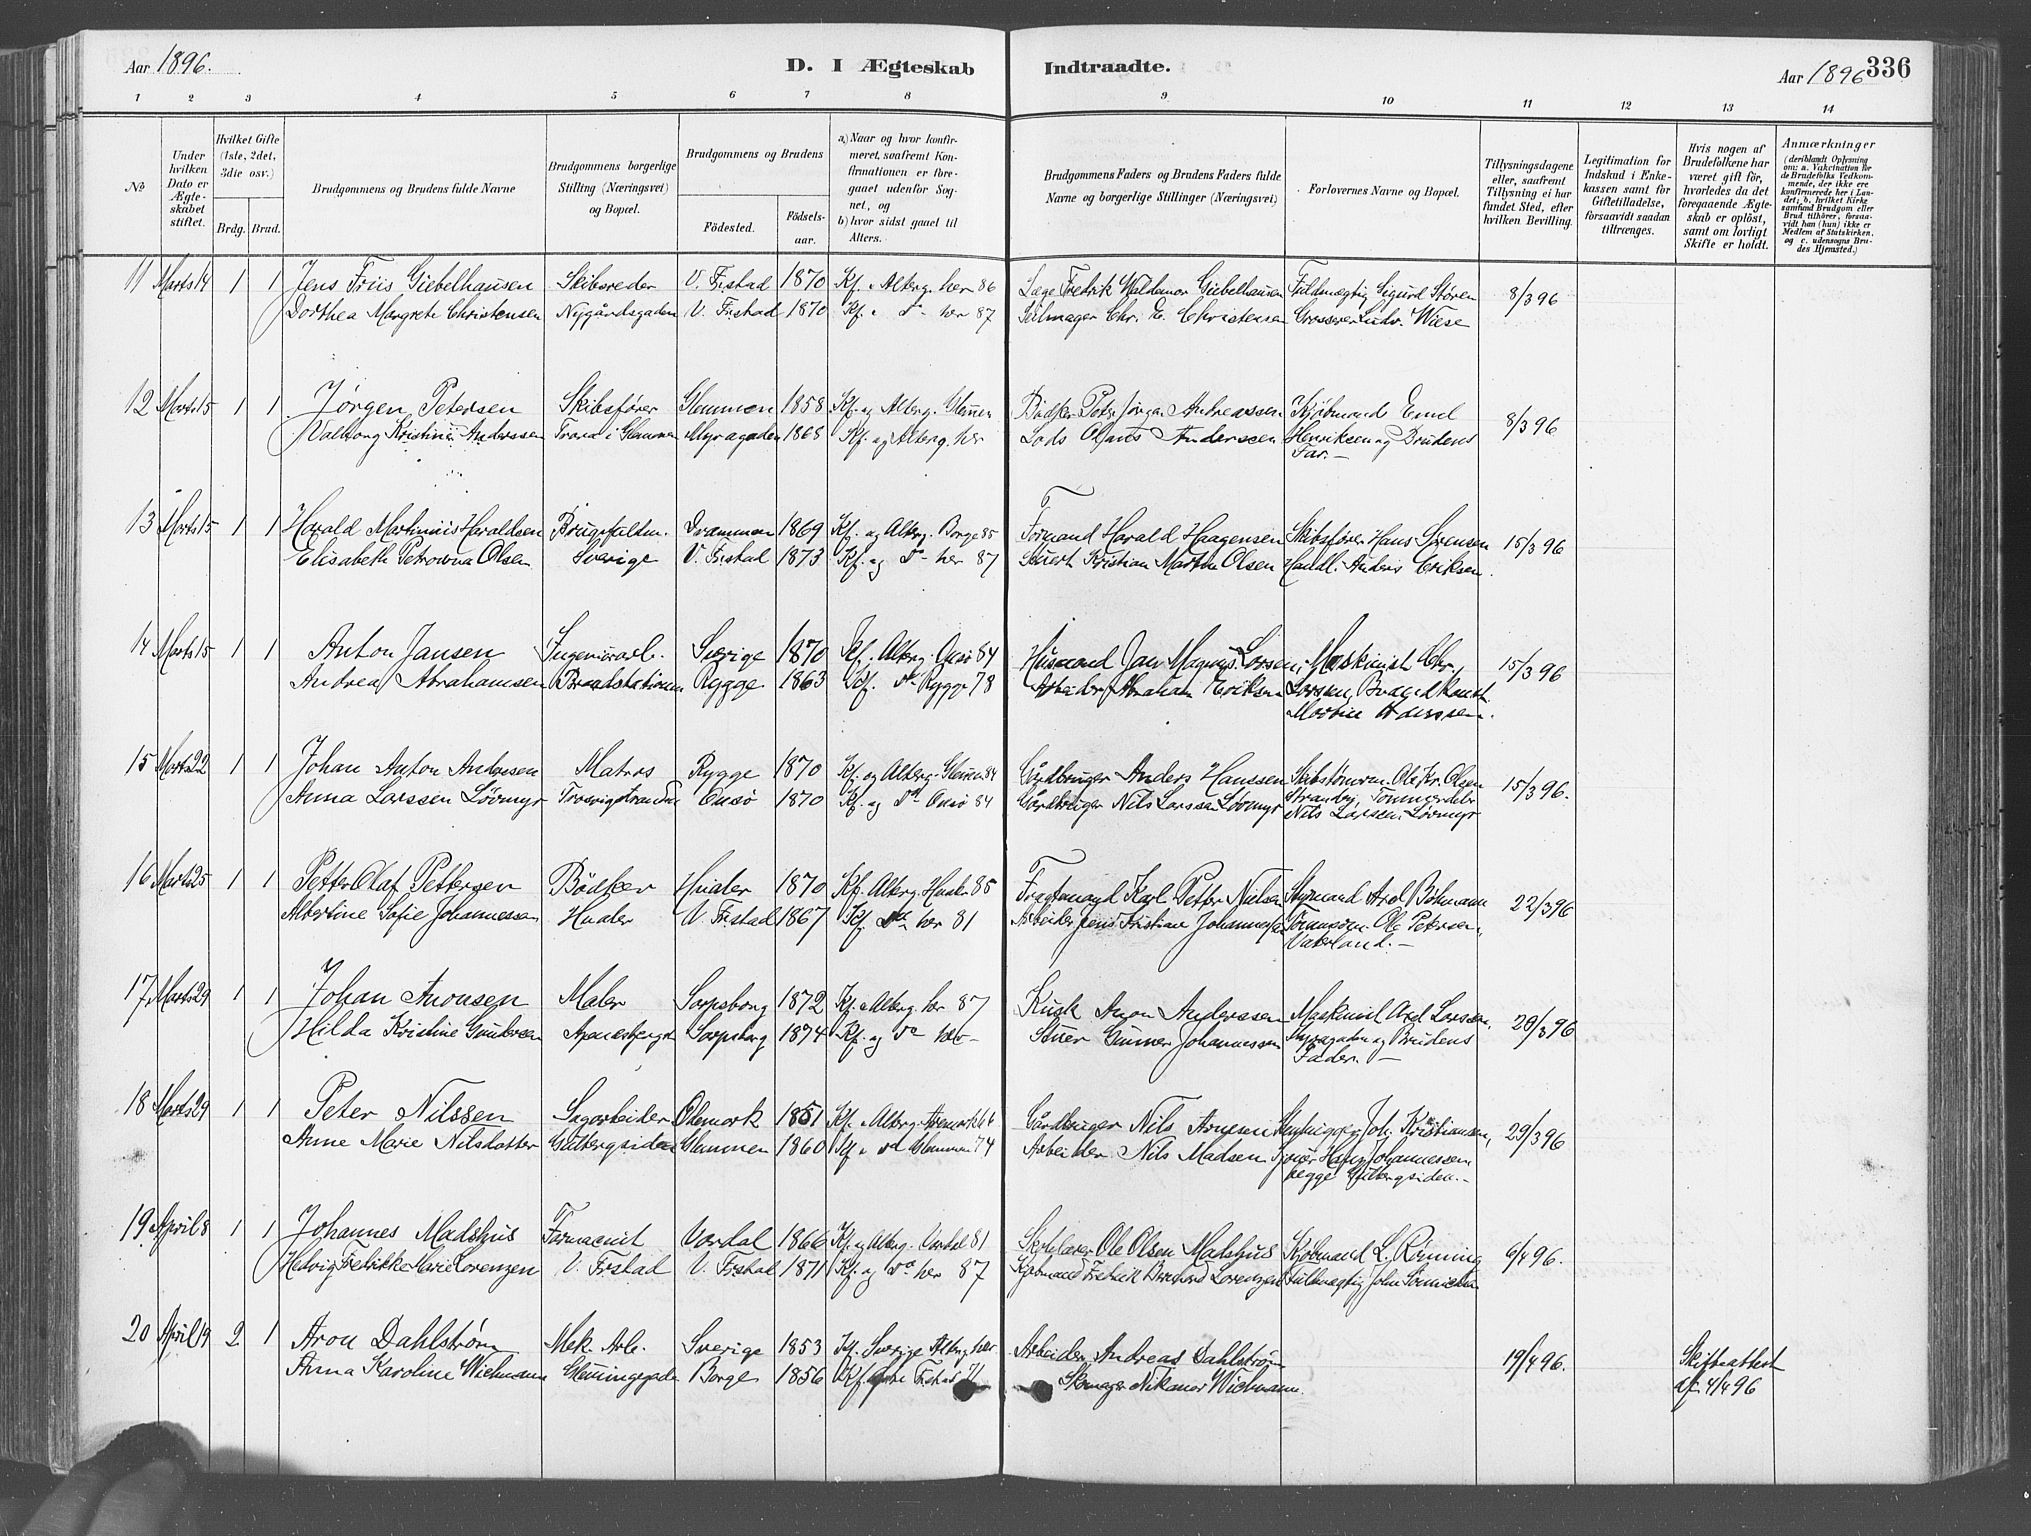 Aar 1896. D. I Ægteskab Indtraadte. Aar 1896 336
1 2 3 4 5 6 7 8 9 10 11 12 13 14
No
Under hvilken Dato er Ægteskabet stiftet.
Hvilket Gifte (1ste, 2det, 3die osv.)
Brdg. Brud.
Brudgommens og Brudens fulde Navne
Brudgommens borgerlige Stilling (Næringsvei) og Bopæl.
Brudgommens og Brudens
Fødested. Fødselsaar.
a.) Naar og hvor konfirmeret, saafremt Konfirmationen er foregaaet udenfor Sognet, og
b.) hvor sidst gaaet til Alters.
Brudgommens Faders og Brudens Faders fulde Navne og borgerlige Stillinger (Næringsvei)
Forlovernes Navne og Bopæl.
Tillysningsdagene eller, saafremt Tillysning ei har fundet Sted, efter hvilken Bevilling.
Legitimation for Indskud i Enkekassen samt for Giftetilladelse, forsaavidt saadan tiltrænges.
Hvis nogen af Brudefolkene har været gift før, hvorledes da det foregaaende Ægteskab er opløst, samt om lovligt Skifte er holdt.
Anmærkninger (deriblandt Oplysning om: a. Vakcination for de Brudefolks Vedkommende, der ikke ere konfirmerede her i Landet; b. hvilket Kirkesamfund Brudgom eller Brud tilhører, forsaavidt han (hun) ikke er Medlem af Statskirken, og c. udensogns Brudes Hjemsted.)
11 Marts 14 1 1 Jens Friis Giebelhausen Skibsreder V. Frstad 1870 Kf. Alterg. her 86 Læge Fredrik Waldemar Giebelhausen Fuldmægtig Sigurd Støren 8/3 96
Dorthea Margrete Christensen Nygårdsgaden V. Frstad 1870 Kf. do her 87 Chr. E. Christensen Grosserer Ludv. Wiese
12 Marts 15 1 1 Jørgen Petersen Skibsfører Glemmen 1858 Kf. og Alterg. Glemmen Bødker Jørgen Andreassen Kjøbmand Emil 8/3 96
Valborg Kristine Anderssen Trara i Glemmen Myragaden 1868 Kf. og Alterg. her Lods Olaus Anderssen Henriksen og Brudens
Far.
13 Marts 15 1 1 Harald Martinius Haraldsen Brugsfuldm. Drammen 1869 Kf. og Alterg. Borge 85 Formand Harald Haagensen Skibsfører Hans Sørensen 15/3 96
Elisabeth Petrowna Olsen Sverige V. Frstad 1873 Kf. og do her 87 Stuert Kristian Martin Olsen Handl. Anders Eriksen.
14 Marts 15 1 1 Anton Jansen Sverige 1870 Kf. Alterg. Onsø 84 Husmand Jan Magnus Larsen, Maskinist Chr. 15/3 96
Andrea Abrahamsen Brandstationen Rygge 1863 Kf. do Rygge 78 Arbeider Abraham Eriksen Larsen, Brandkonst.
15 Marts 22 1 1 Johan Anton Andersen Matros Rygge 1870 Kf. og Alterg. Glemmen 84 Gårdbruger Anders Hanssen Skibstømrm. Ole Kr. Olsen 15/3 96.
Anna Larssen Løvmyr Onsø 1870 Kf. og do Onsø 84 Gårdbruger Nils Larssen Løvmyr
Nils Larsen Løvmyr
16 Marts 25 1 1 Petter Olaf Pettersen Bødker Hvaler 1870 Kf. Alterg. Hvaler 85 Fragtemand Karl Petter Nilsen Styrmand Axel Bøhmann 22/3 96
Albertine Sofie Johannessen Hvaler V. Frstad 1867 Kf. do her 81 Arbeider Jens Kristian Johannessen Tømmerm. Ole Petersen,
Vaterland.
17 Marts 29 1 1 Johan Aronsen Maler Sarpsborg 1872 Kf. Alterg. her 87 Kusk Aron Anderssen Maskinist Axel Larssen, 20/3 96
Hilda Kristine Gundersen Sarpsborg 1874 Kf. og do her Stuer Gunner Johannessen Myragaden og Brudens
Fader.
18 Marts 29 1 1 Peter Nilssen Sagarbeider 1851 Kf. Alterg. Gårdbruger Nils Arnesen Joh. Kristiansen, 29/3 96
Anne Marie Nilsdatter Gudbergsiden Glemmen 1860 Kf. do Glemmen 74 Arbeider Nils Madsen Hans Johannessen
begge Gudbergsiden.
19 April 8 1 1 Johannes Madshus Farmaceut Vardal 1866 Kf. og Alterg. Vardal 81 Skolelærer Ole Olsen Madshus Kjøbmand L. Rønning 6/4 96.
Hedvig Fredrikke Marie Lorenzen V. Frstad V. Frstad 1871 Kf. og do her 87 Kjøbmand Fredrik Bernhard Lorenzen Fuldmægtig John
20 April 19 2 1 Aron Dahlstrøm Mek. Arb. Sverige 1853 Kf. Sverige Alterg. her Arbeider Andreas Dahlstrøm 19/4 96. Skifteattest
Anna Karoline Wiehmann Borge 1856 Kf. Frstad 71 Skomager Nikanor Wiehmann. af 4/4 96